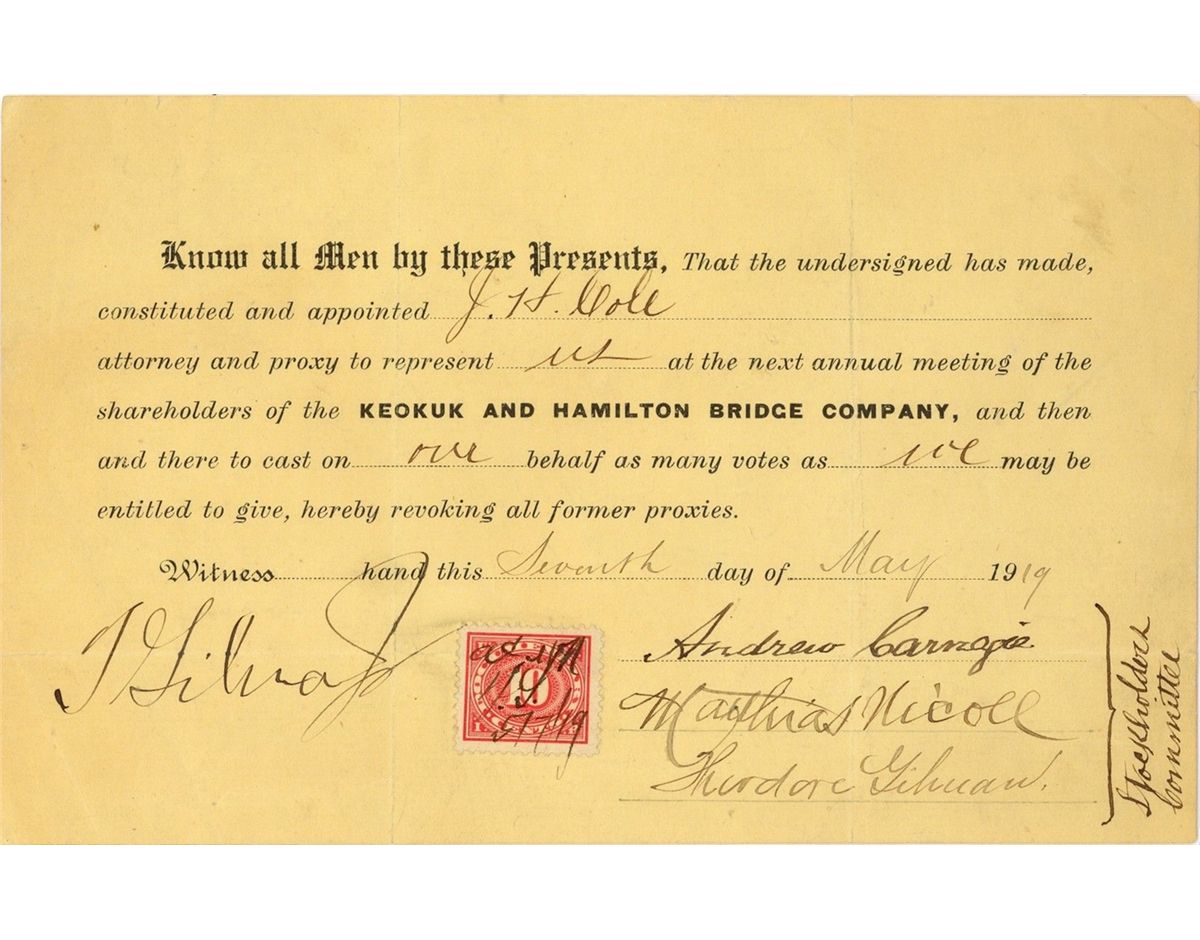 Know all Men by these Presents, That the undersigned has made,
constituted and appointed J. H. Cole
attorney and proxy to represent us at the next annual meeting of the
shareholders of the KEOKUK AND HAMILTON BRIDGE COMPANY, and then
and there to cast on our behalf as many votes as we may be
entitled to give, hereby revoking all former proxies.
Witness hand this Seventh day of May 1919
T Gilman Jr
10
5/7/19
Andrew Carnegie
Matthias Nicoll
Theodore Gilman.
Stockholders
Committee